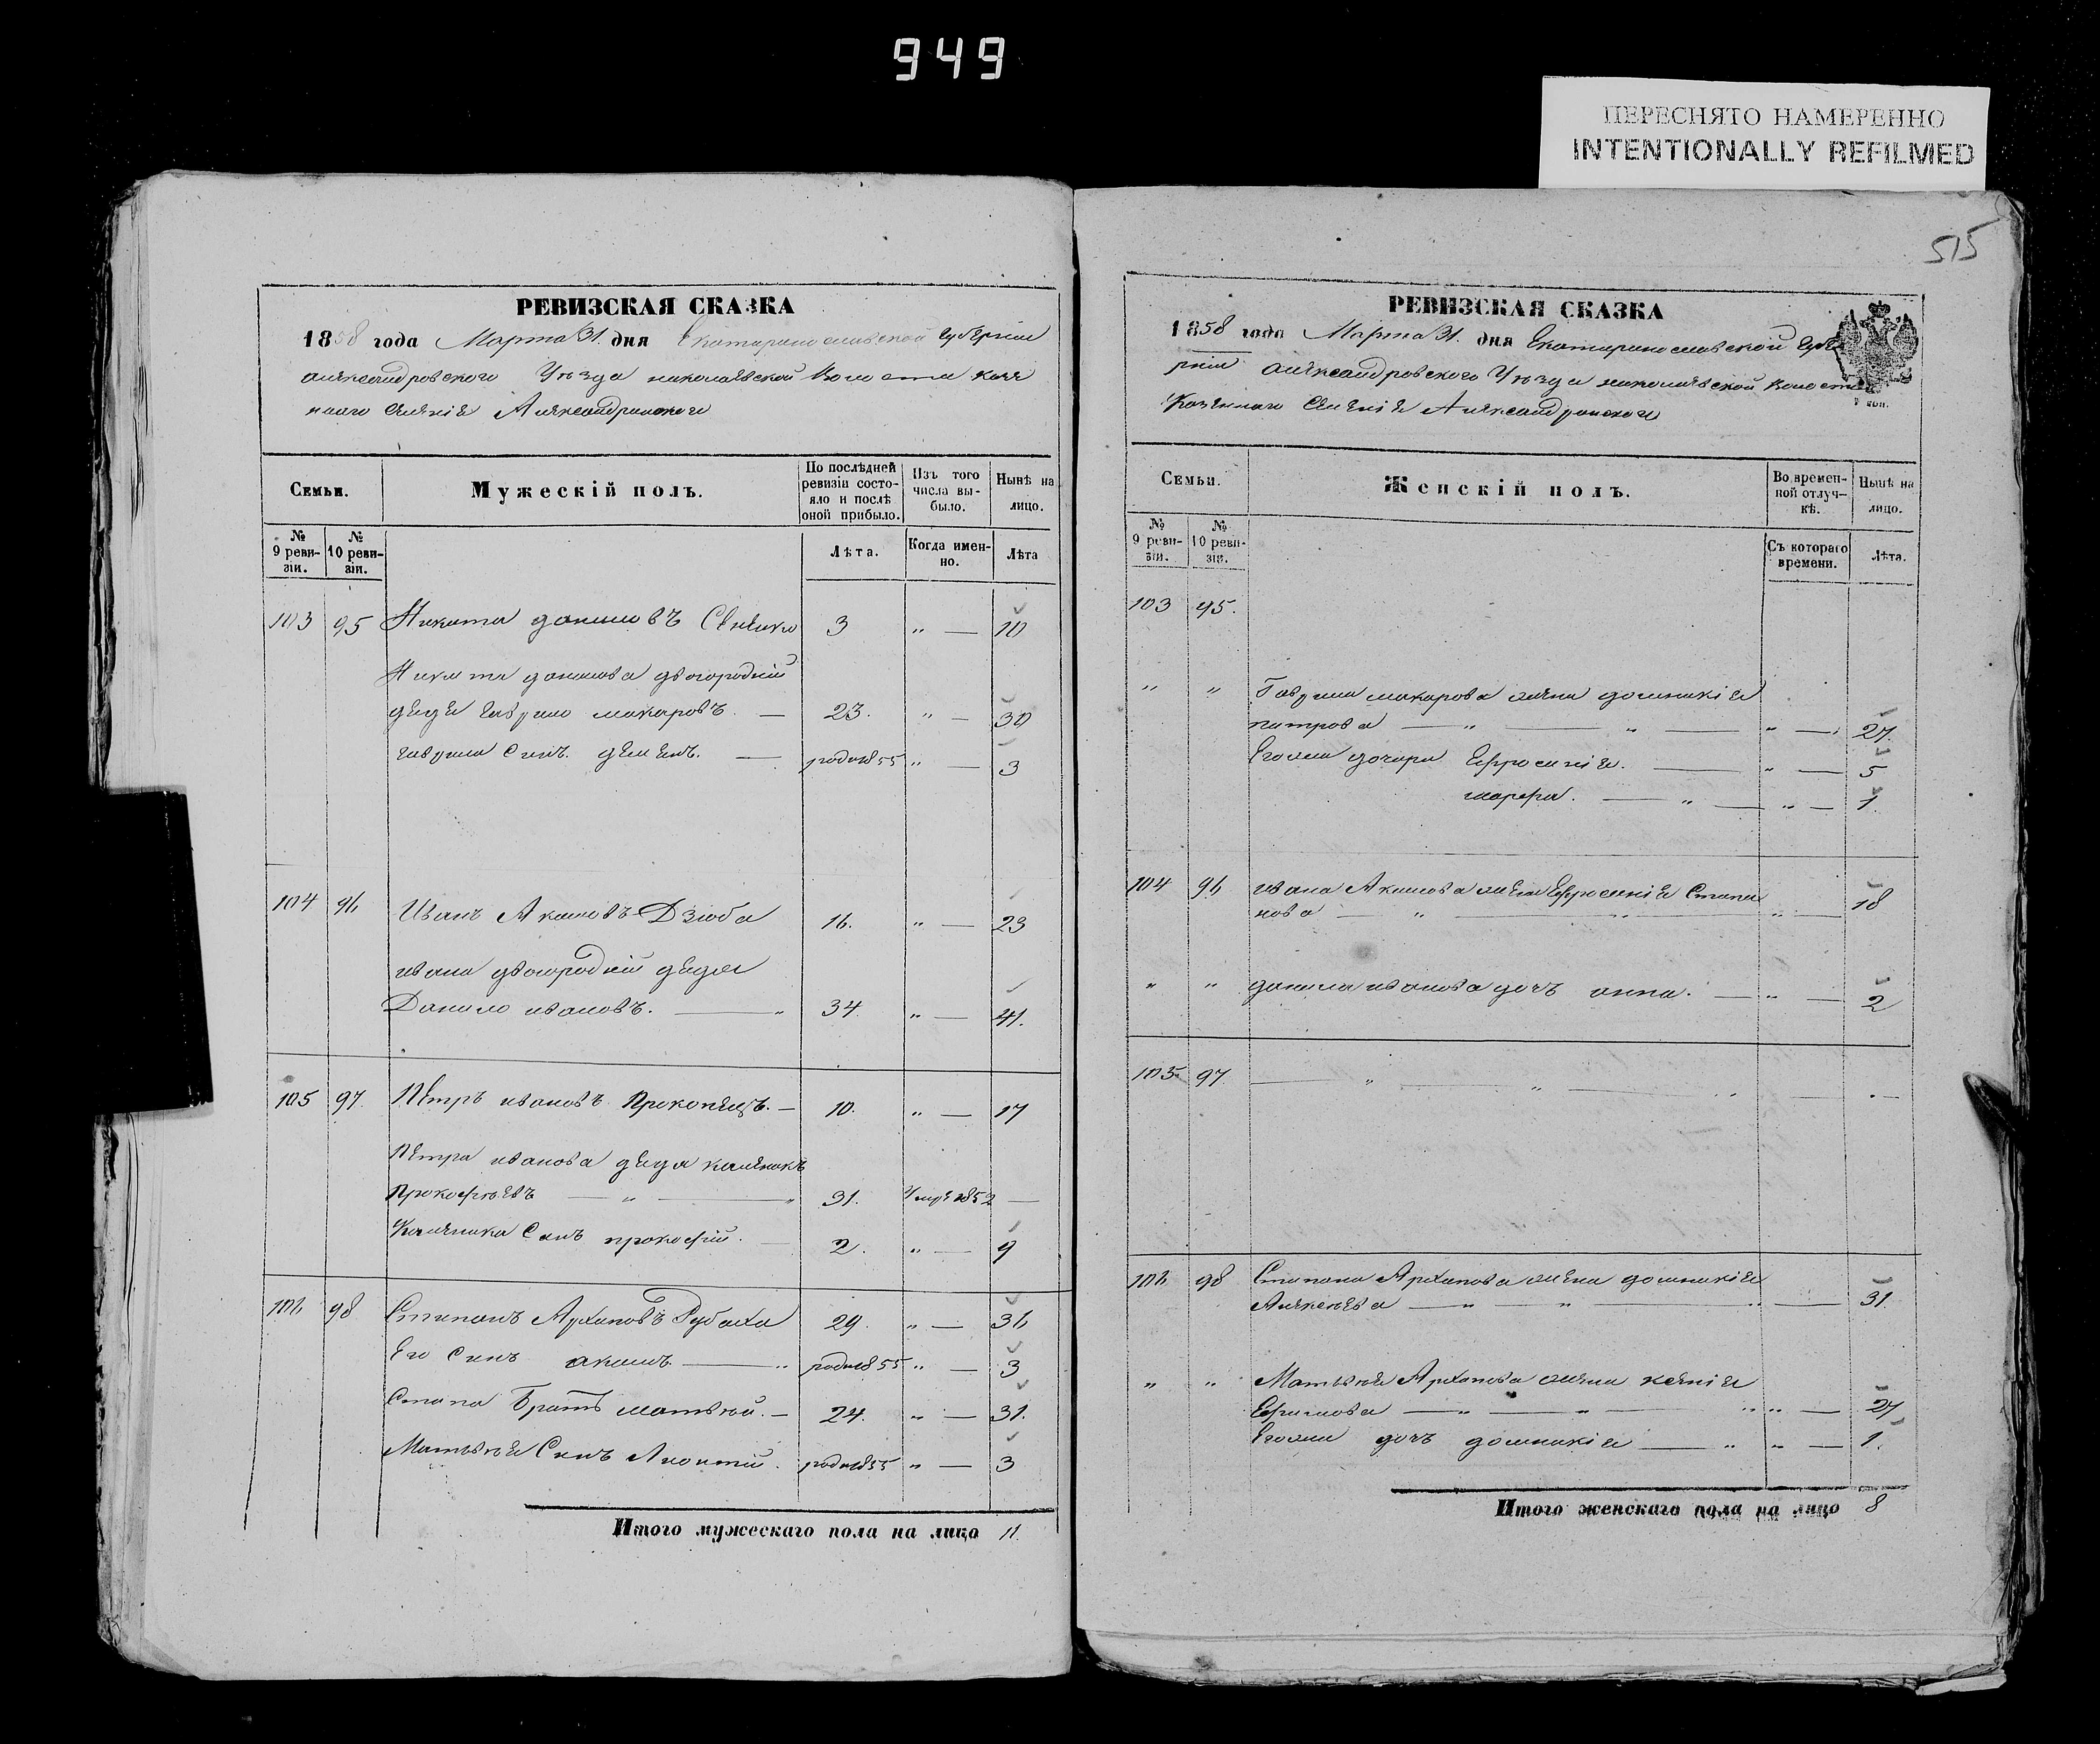 949
ПЕРЕСНЯТО НАМЕРЕННО
INTENTIONALLY REFILMED
515
РЕВИЗСКАЯ СКАЗКА
1858 года Марта 31. дня Екатеринославской губернiи
александровского Уезда николаевской Волости казе
ннаго селенiе Александровского
Семьи.
Мужескiй полъ.
По послѣдней ревизiи состояло и послѣ оной прибыло.
Изъ того числа выбыло.
Нынѣ на лицо.
№ 9 ревизiи.
№ 10 ревизiи.
Лѣта.
Когда именно.
Лѣта
103 95 Никита даниловъ 3 " — 10
Никиты данилова двоюродкiй
дядя гаврило макаровъ — 23. " — 30
гаврила Синъ деменъ. — родил 1855 " — 3
104 96 Иванъ Акимовъ Дзюба 16. " — 23
ивана двоюродкiй дядя
Данило ивановъ. — " 34 " — 41.
105 97. Петръ ивановъ Прокопецъ. — 10. " — 17
Петра иванова дядя каленикъ
Прокофьевъ — " — " 31. Умре 1852 —
Каленика Синъ прокофiй. — 2. " — 9
106 98 Степанъ Архиповъ Рубаха 29. " — 36
Его Синъ акимъ — " родил 1855 " — 3
Степа Братъ матвей. — 24. " — 31.
Матвея Синъ Леонтiй. родил 1855 " — 3
Итого мужескаго пола на лицо 11.
РЕВИЗСКАЯ СКАЗКА
1858 года Марта 31. дня Екатеринославской губе
рнiи александровского Уезда николаевской волости
Казенного Селенiе Александровского
Семьи.
Женскiй полъ.
Во временной отлучкѣ.
Нынѣ на лицо.
№ 9 ревизiи.
№ 10 ревизiи.
Съ котораго времени.
Лѣта.
103 95.
" " Гаврила макарова жена домникiе
петрова — " — " — " — 27.
Егоже дочери Ефросинiе. — " — 5
марфа. — " — " — 1.
104 96 ивана Акимова жена Ефросинiе Степа
нова — " — " — " — 18
" " данила иванова дочъ анна. — " — 2
105 97. — " — " — " — " —
106 98 Степана Архипова жена домникiе
Алексеева — " — " — " — 31.
" " Матвея Архипова жена ксенiе
Ефимова — " — " — " " — 27
Егоже дочъ домникiе — " " — 1.
Итого женскаго пола на лицо 8